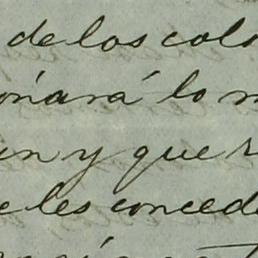 de los colo
onará lo m
un y que r
e les conced